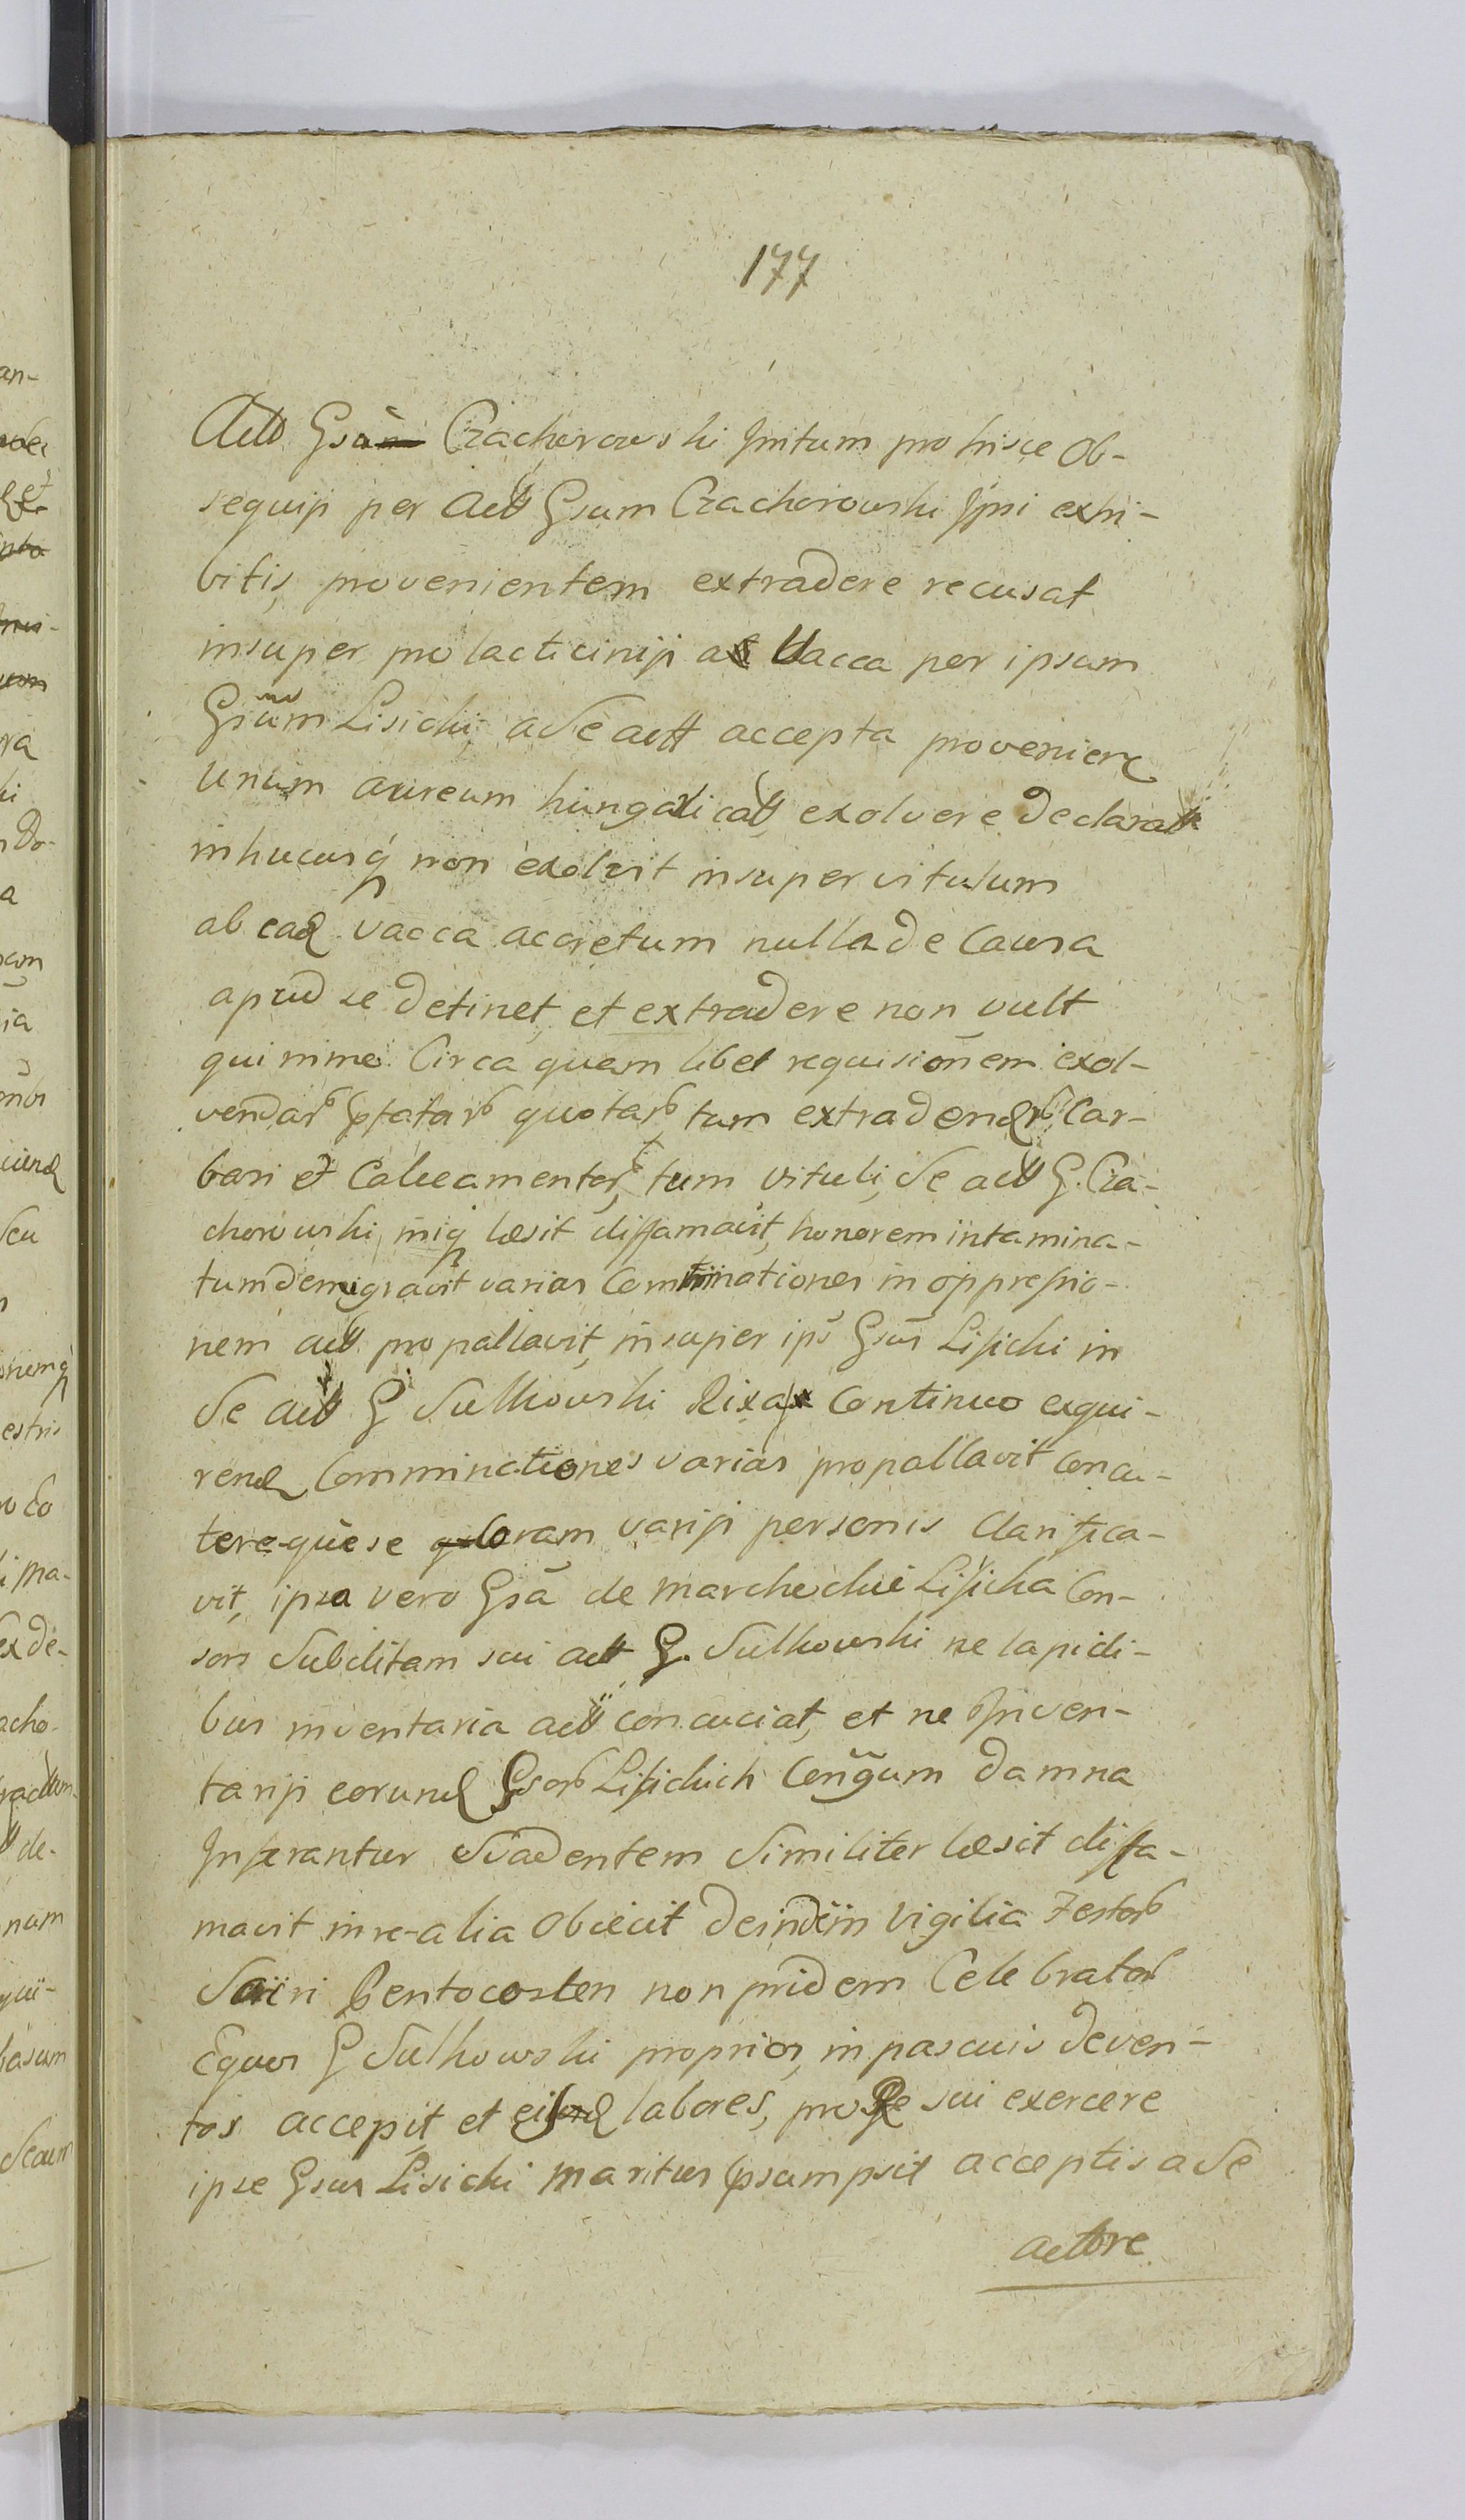 177
Actt Gsum Czachorowski Initum pro hisce Ob-
sequijs per Actt Gsum Czachorowski Ipsi exhi-
bitis, provenientem extradere recusat
insuper pro lacticinijs a Vacca per ipsum
Gsum Lisicki, a se actt accepta proveniens
Unum aureum hungaricalt exolvere declaratt
inhucusq non exolvit insuper vitulum
ab ead vacca accretum nulla de Causa
apud se detinet, et extradere non vult
quinimo Circa quam libet requisionem exol-
vendar ptatar quotar, tum extradendr Car-
bari et Calceamentor, tum vituli, se actt G. Cza-
chorowski, niq læsit diffamavit, honorem intamina-
tum denigravit varias Comminationes in oppressio-
nem actt propallavit, insuper ips Gsus Lisicki in
se actt G Sulkowski Rixas Continuo exqui-
rend Comminationes varias propallavit concu-
tereque se Coram varijs personis Clarifica-
vit, ipsa vero Gsa de Lisicka Con-
sors Subditam sui actt G. Sulkowski ne lapidi-
bus inventaria actt concuciat, et ne Inven-
tarijs eorund Gsor Lisickich Congum damna
Inferantur Suadentem Similiter læsit diffa-
mavit in re-alia Obiecit dein in Vigilia Festor
Sacri Pentocosten non pridem Celebrator
Equos G Sulkowski proprios, in pascuis deven-
tos accepit et labores, pro se sui exercere
ipse Gsus Lisicki maritus psumpsit acceptis a se
actore